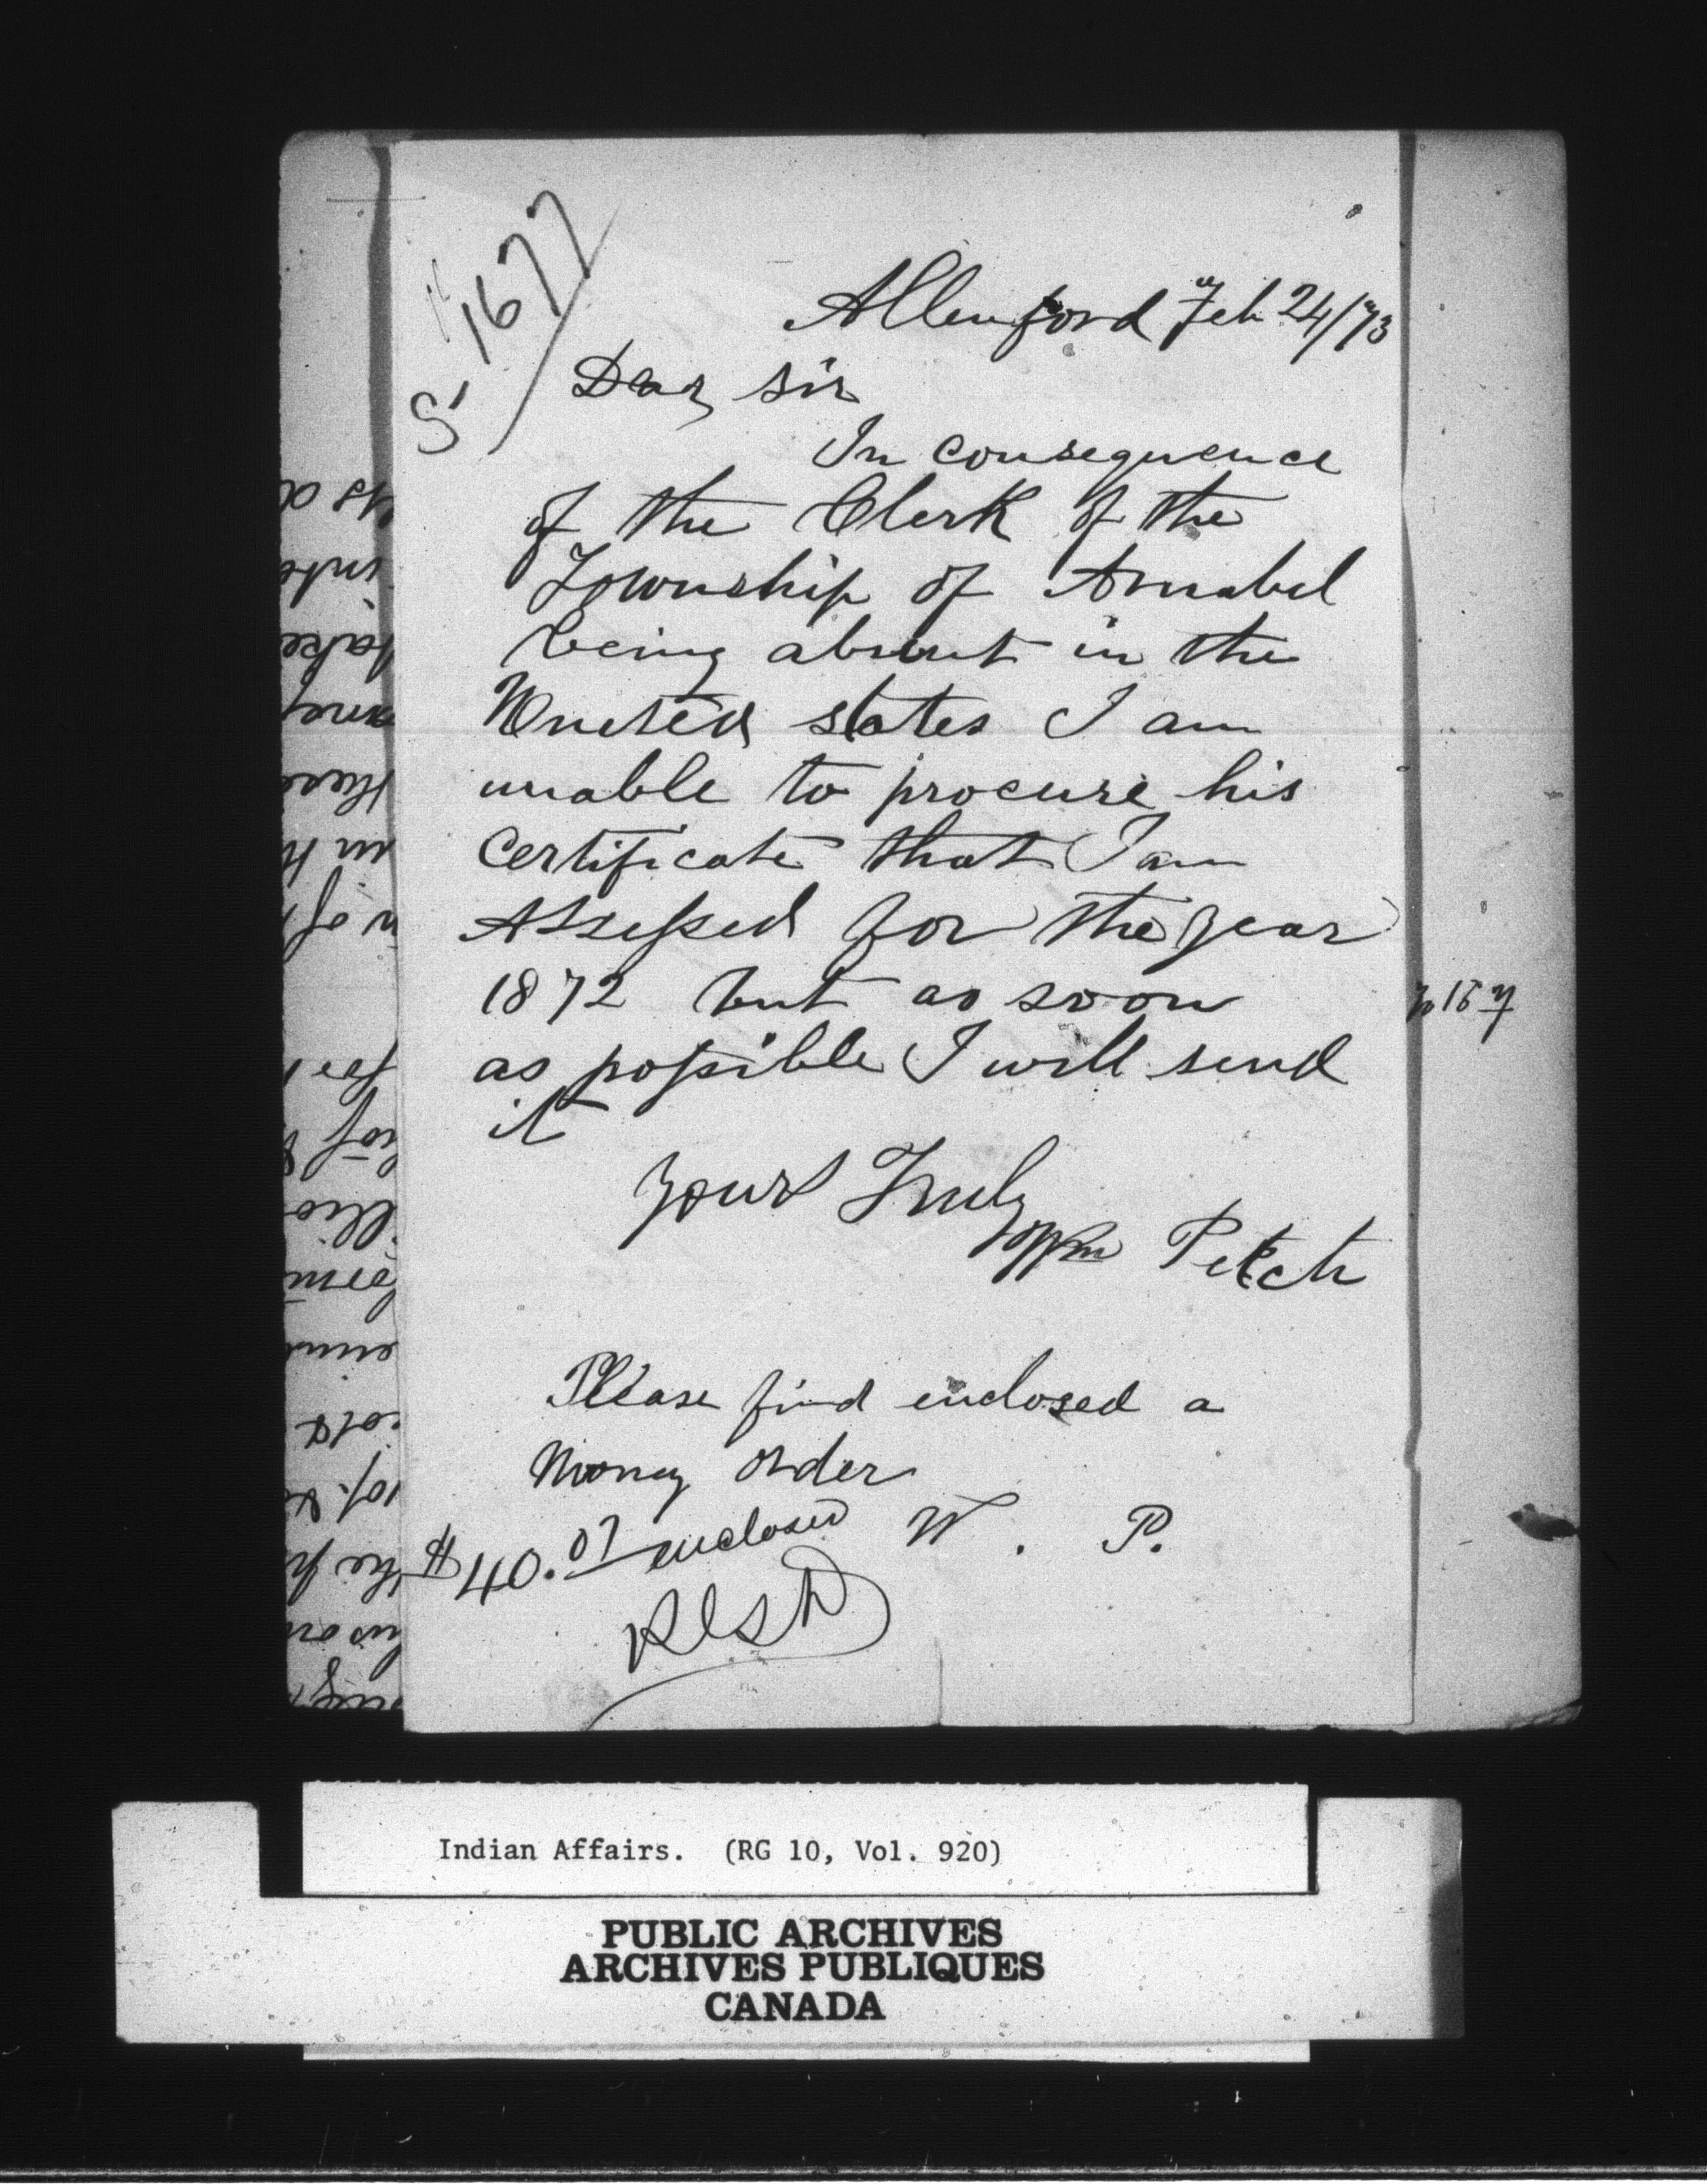 S 1677
Allenford Feb 24/73
Dear sir
In consequence
of the Clerk of the
Township of Amabel
being absent in the
United states I am
unable to procure his
Certificate that I am
Assessed for the year
1872 but as soon
as possible I will send
it
Yours Truly
Wm Petch
Please find enclosed a
Money order
W. P.
$40.07 enclosed
Indian Affairs. (RG 10, Vol. 920)
PUBLIC ARCHIVES
ARCHIVES PUBLIQUES
CANADA